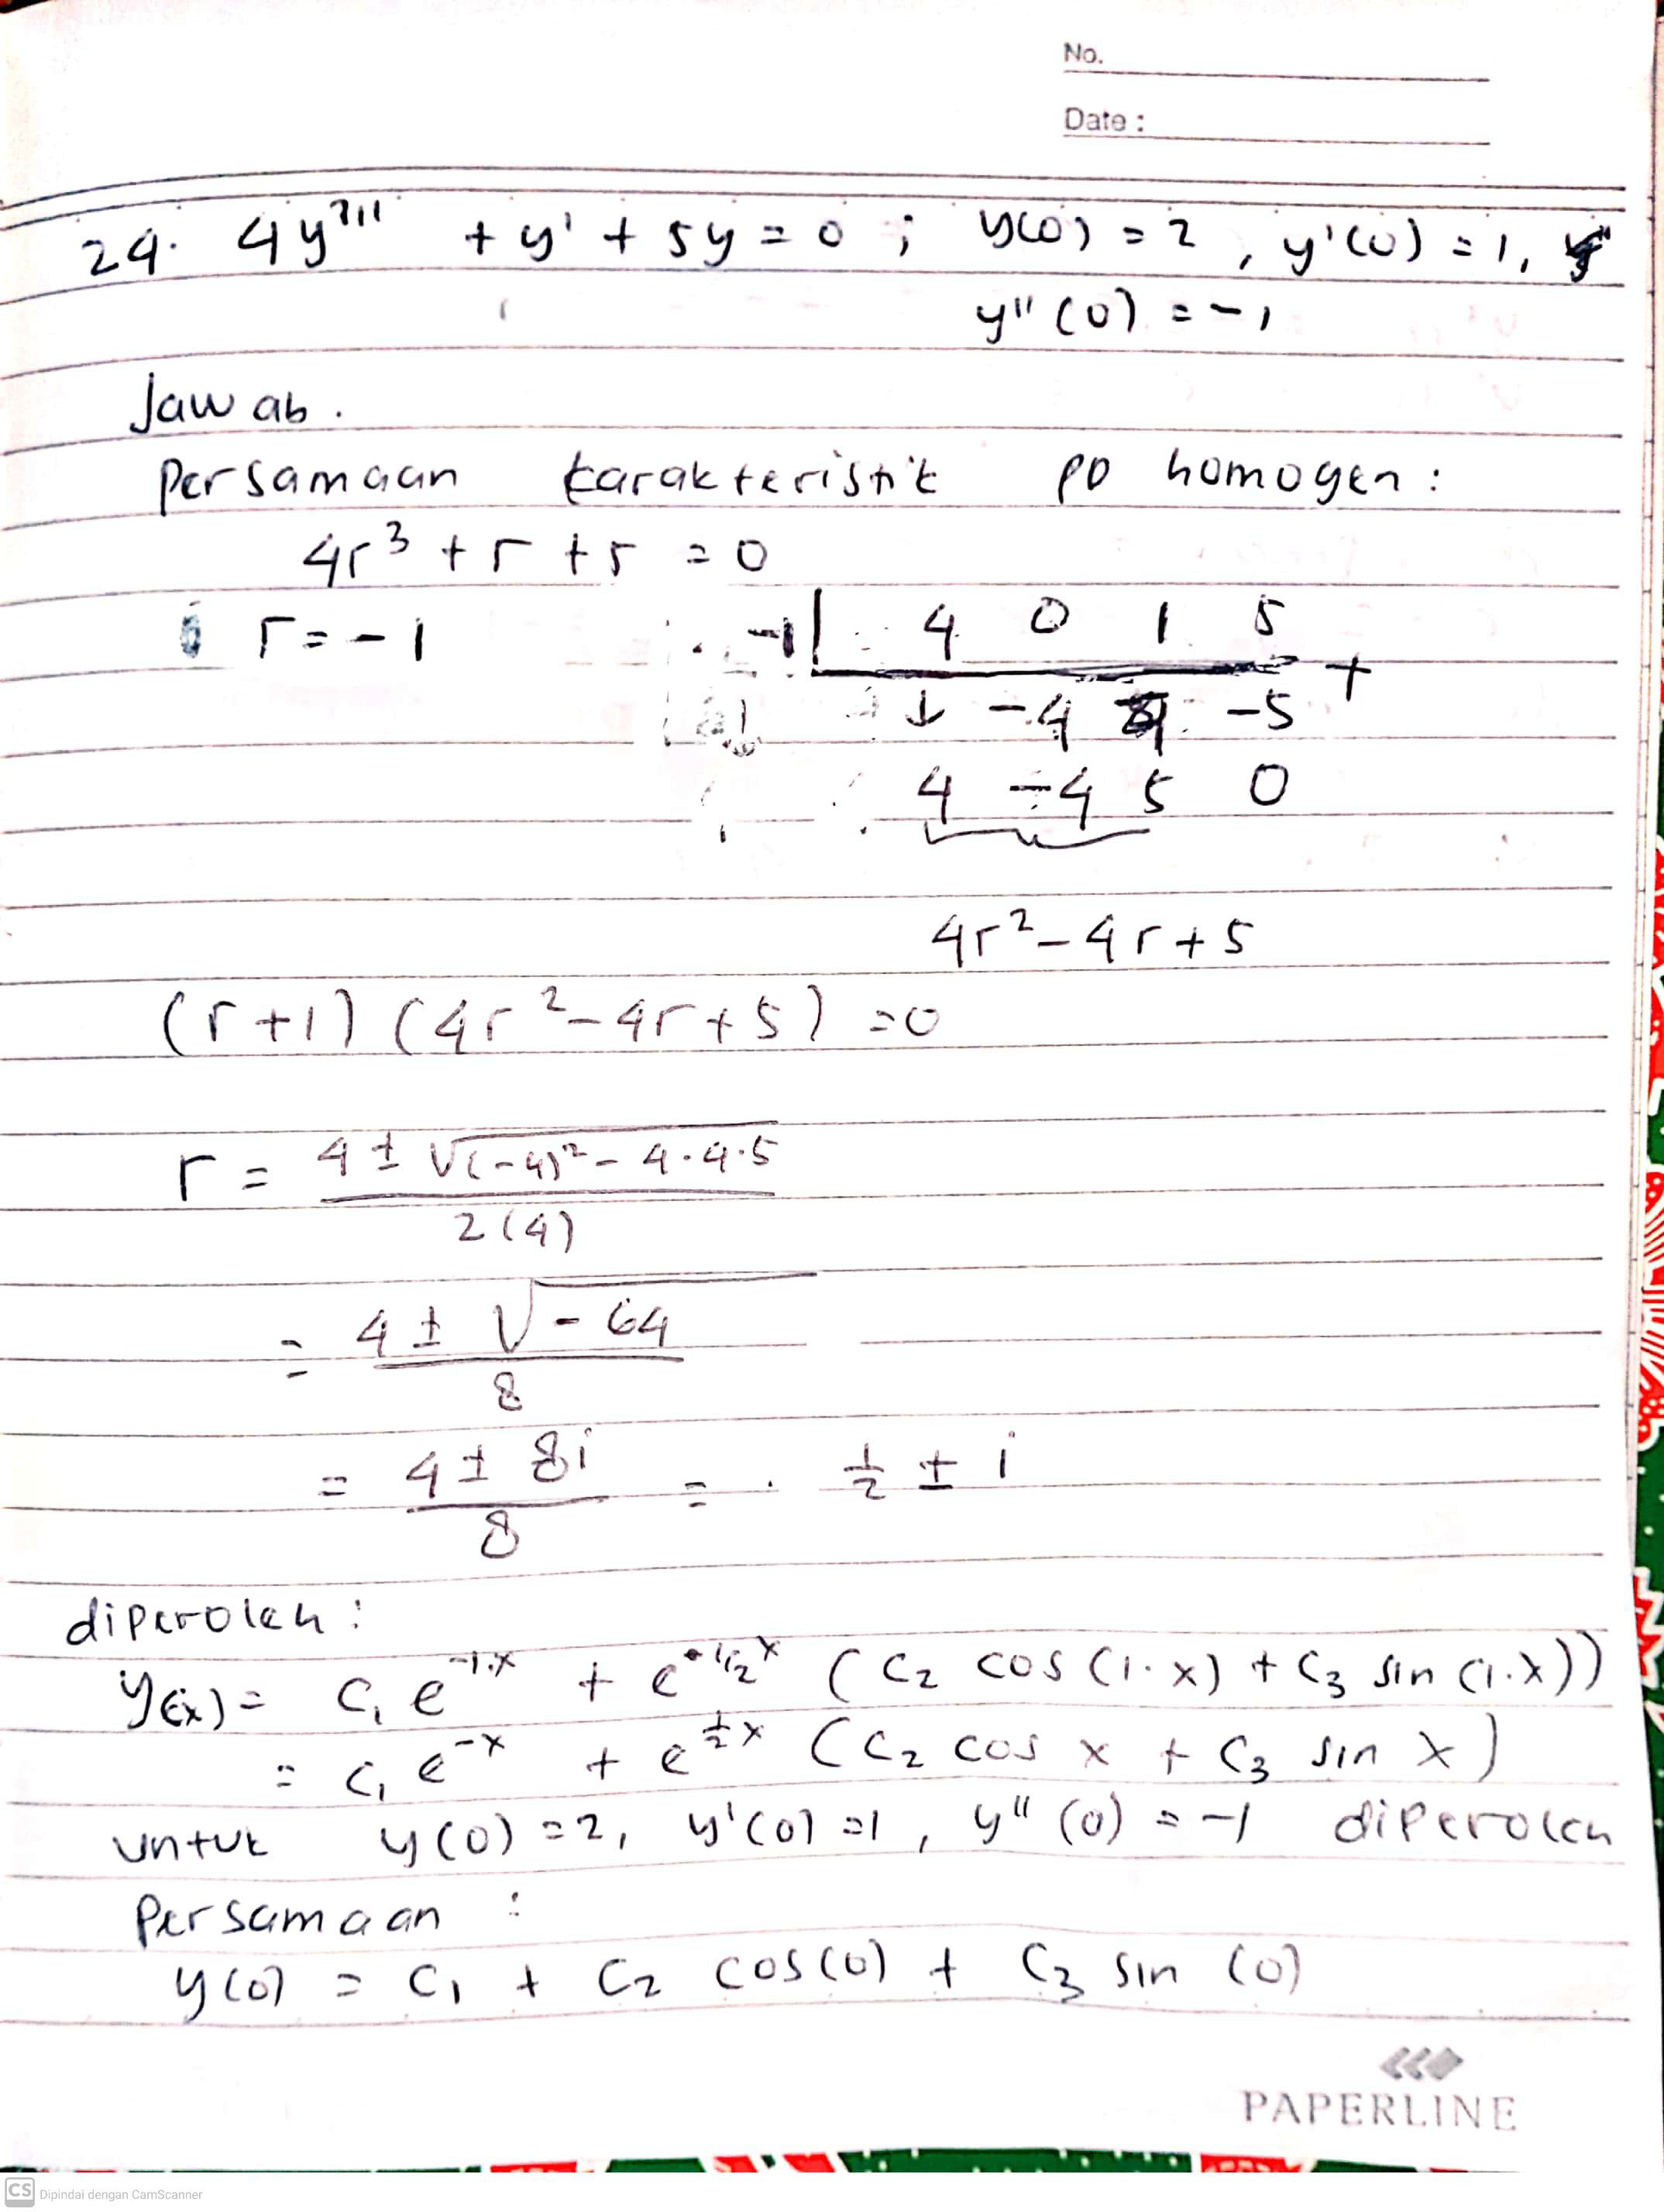 No.
Date :
24. 4y''' + y' + 5y = 0 ; y(0) = 2 , y'(0) = 1,
y''(0) = -1
Jawab.
Persamaan karakteristik PD homogen :
4r³ + r + 5 = 0
r = -1 -1| 4 0 1 5
↓ -4 4 -5 +
4 -4 5 0
4r² - 4r + 5
(r+1) (4r² - 4r + 5) = 0
r = (4 ± √((-4)² - 4·4·5)) / 2(4)
= (4 ± √-64) / 8
= (4 ± 8i) / 8 = ½ ± i
diperoleh :
y(x) = C₁ e^(-1·x) + e^(1/2 x) (C₂ cos (1·x) + C₃ sin (1·x))
= C₁ e^(-x) + e^(½x) (C₂ cos x + C₃ sin x)
untuk y(0) = 2, y'(0) = 1 , y''(0) = -1 diperoleh
Persamaan :
y(0) = C₁ + C₂ cos(0) + C₃ sin (0)
PAPERLINE
CS Dipindai dengan CamScanner